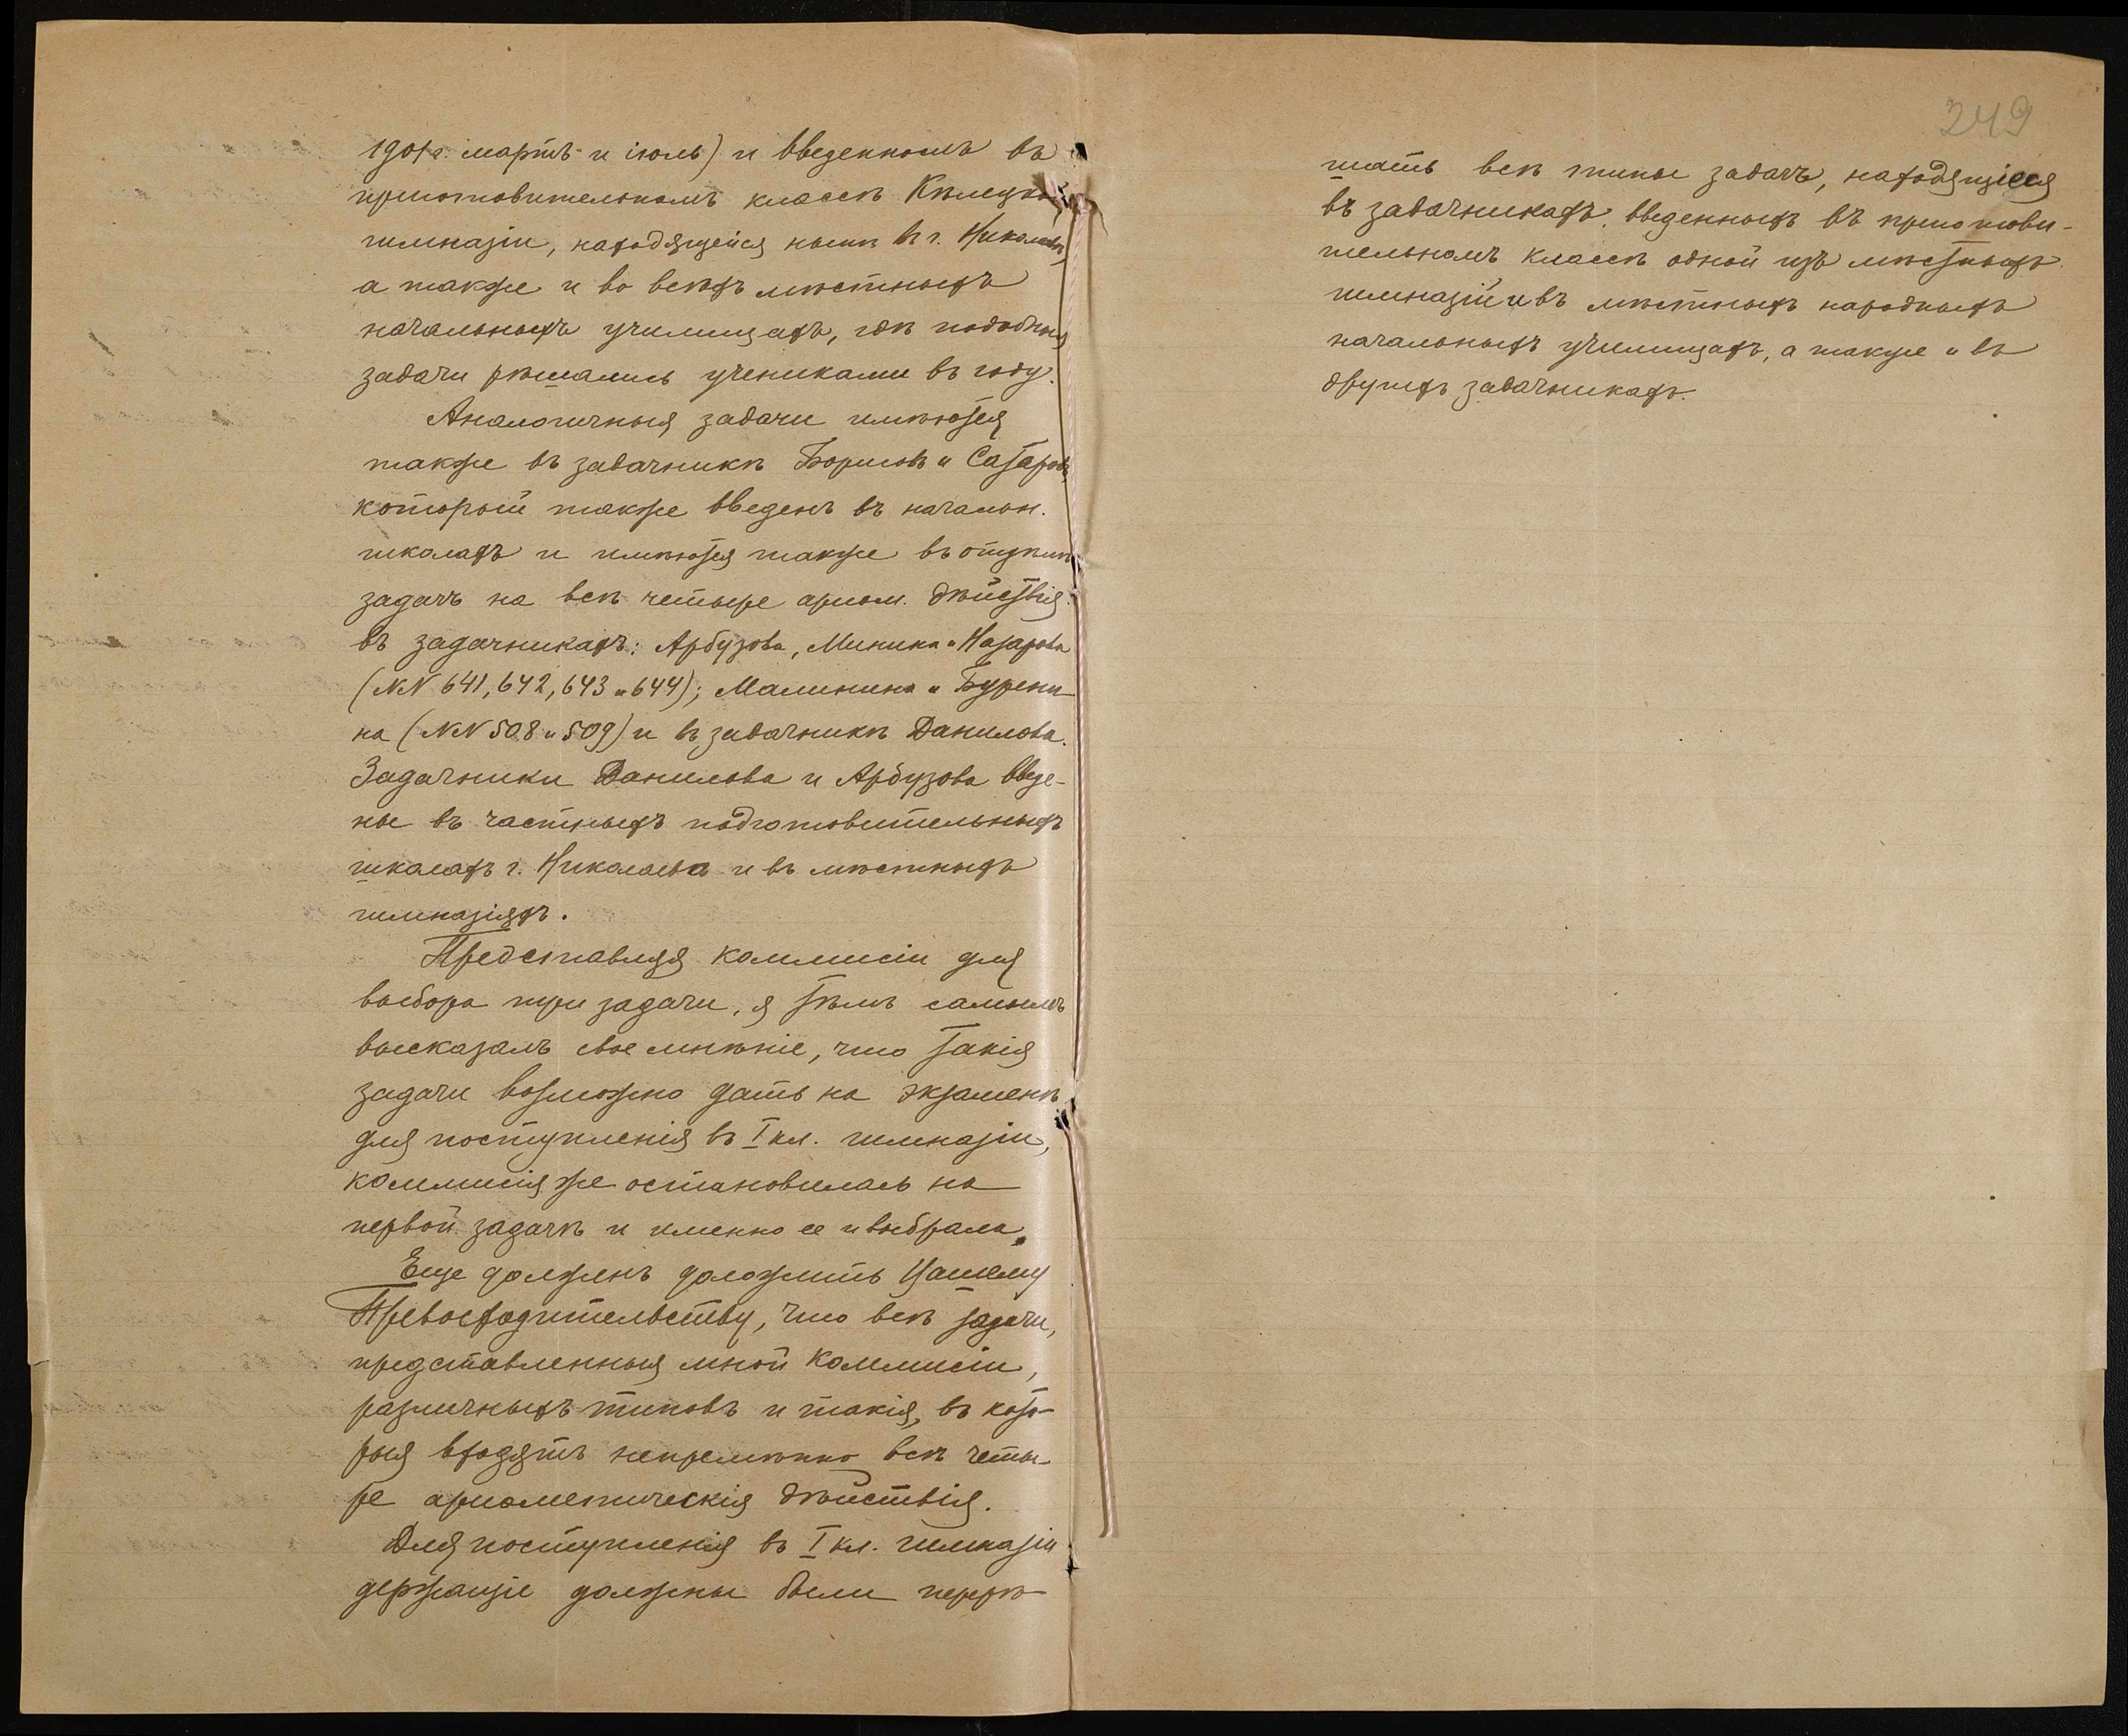 1901 г. мартъ и іюль) и введенномъ въ
приготовительномъ классѣ Кѣлецкой
гимназіи, находящейся нынѣ въ г. Николаевѣ,
а также и во всѣхъ мѣстныхъ
начальныхъ училищахъ, гдѣ подобныя
задачи рѣшались учениками въ году.
Аналогичныя задачи имѣются
также въ задачникѣ Борисовъ и Сатаровъ,
который также введенъ въ начальн.
школахъ и имѣются также въ отдѣлѣ
задачъ на всѣ четыре ариѳм. дѣйствія:
въ задачникахъ: Арбузова, Минина и Назарова
(NN 641, 642, 643 и 644); Малинина и Бурени-
на (NN 508 и 509) и въ задачникѣ Данилова.
Задачники Данилова и Арбузова введе-
ны въ частныхъ подготовительныхъ
школахъ г. Николаева и въ мѣстныхъ
гимназіяхъ.
Представляя коммисіи для
выбора три задачи, я тѣмъ самымъ
высказалъ свое мнѣніе, что такія
задачи возможно дать на экзаменѣ
для поступленія въ I кл. гимназіи,
коммисія же остановилась на
первой задачѣ и именно ее и выбрала.
Еще долженъ доложить Вашему
Превосходительству, что всѣ задачи,
представленныя мной коммисіи,
различныхъ типовъ и такія, въ кото-
рыя входятъ непремѣнно всѣ четы-
ре ариѳметическія дѣйствія.
Для поступленія въ I кл. гимназіи
держащіе должны были перерѣ-
249
шать всѣ типы задачъ, находящіеся
въ задачникахъ, введенныхъ въ приготови-
тельномъ классѣ одной изъ мѣстныхъ
гимназій и въ мѣстныхъ народныхъ
начальныхъ училищахъ, а также и въ
другихъ задачникахъ.